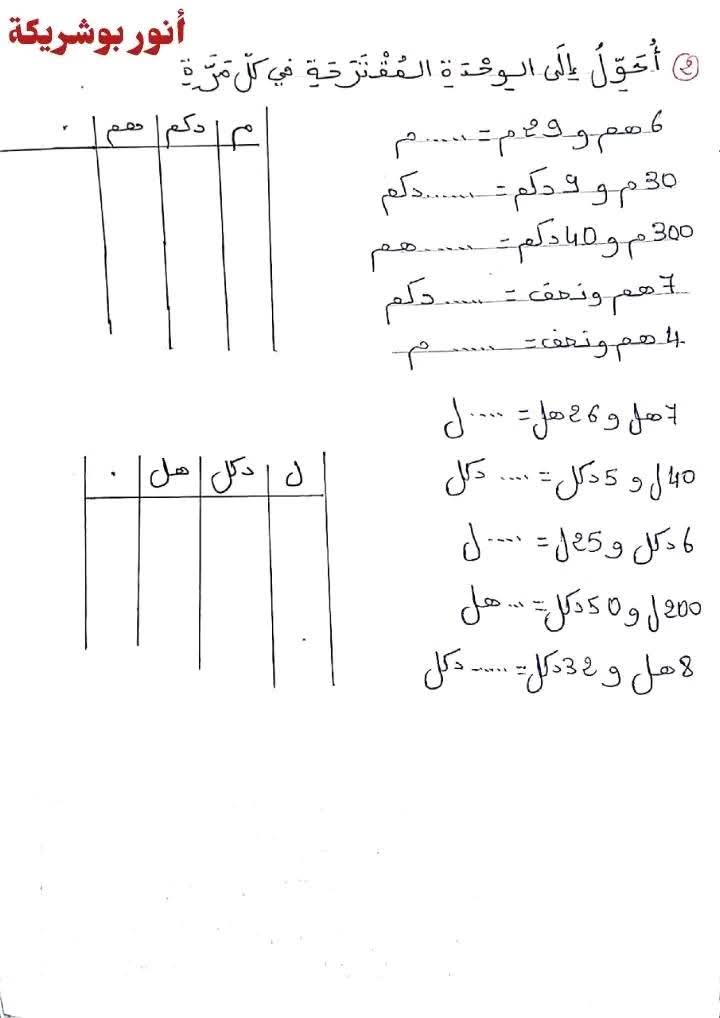 أنور بوشريكة
2 أُحَوِّلُ إِلَى الوِحْدَةِ المُقْتَرَحَةِ في كلّ مَرَّةِ
6 هم و 29 م = ..... م
30 م و 9 دكم = ....... دكم
300 م و 40 دكم = ...... هم
7 هم ونصف = ..... دكم
4 هم ونصف = ..... م
م | دكم | هم | .
7 هل و 26 هل = .... ل
40 ل و 5 دكل = .... دكل
6 دكل و 25 ل = .... ل
200 ل و 50 دكل = ... هل
8 هل و 32 دكل = ..... دكل
ل | دكل | هل | .